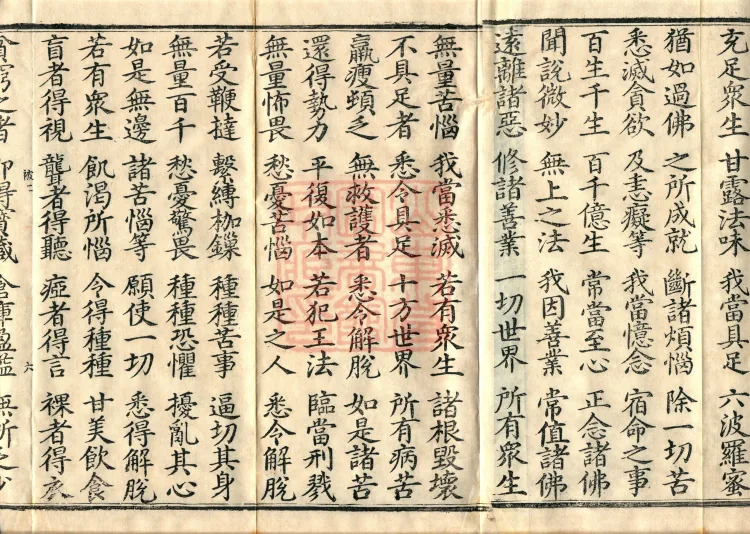 充足衆生 甘露法味 我當具足 六波羅蜜
猶如過佛 之所成就 斷諸煩惱 除一切苦
悉滅貪欲 及恚癡等 我當憶念 宿命之事
百生千生 百千億生 常當至心 正念諸佛
聞說微妙 無上之法 我因善業 常值諸佛
遠離諸惡 修諸善業 一切世界 所有衆生
無量苦惱 我當悉滅 若有衆生 諸根毀壞
不具足者 悉令具足 十方世界 所有病苦
羸瘦頓乏 無救護者 悉令解脫 如是諸苦
還得勢力 平復如本 若犯王法 臨當刑戮
無量怖畏 愁憂苦惱 如是之人 悉令解脫
若受鞭撻 繫縛枷鏁 種種苦事 逼切其身
無量百千 愁憂驚畏 種種恐懼 擾亂其心
如是無邊 諸苦惱等 願使一切 悉得解脫
若有衆生 飢渴所惱 令得種種 甘美飲食
盲者得視 聾者得聽 瘂者得言 裸者得衣
六
貧窮之者 即得寶藏 倉庫盈溢 無所乏少